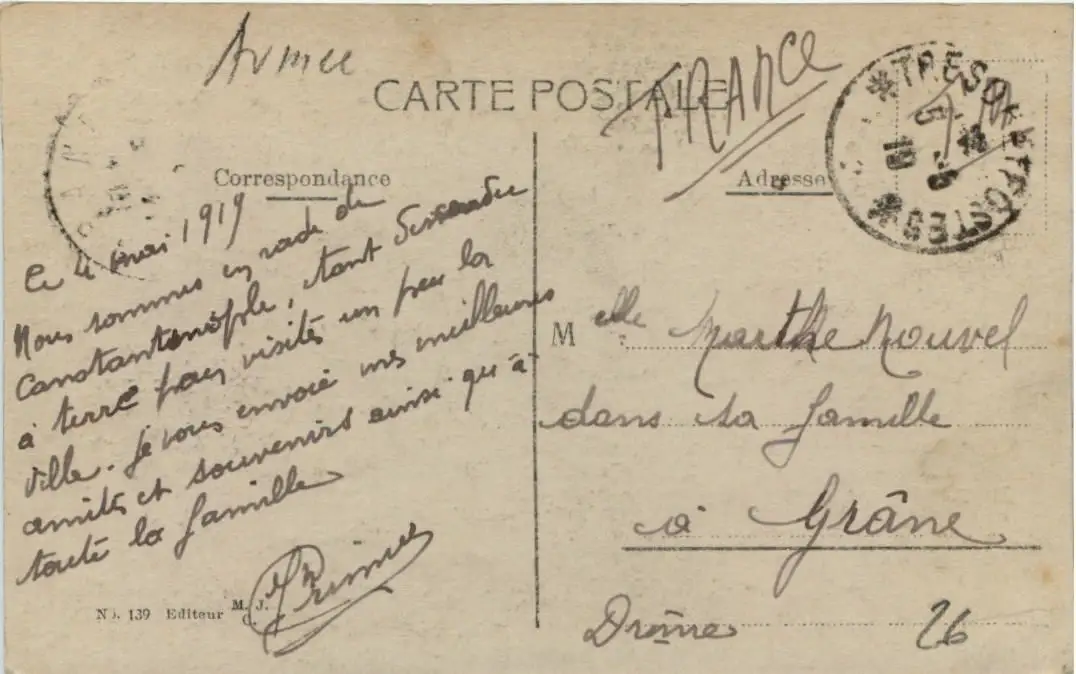 Armée
FRANCE
CARTE POSTALE
Correspondance
Adresse
TRESOR ET POSTES
5 - 5
19
Ce 4 mai 1919
Nous sommes en rade de
Constantinople, tant
à terre pour visités un peu la
ville. Je vous envoie mes meilleures
amités et souvenirs ainsi qu'à
toute la famille
M elle Marthe Nouvel
dans sa famille
à Grâne
Drôme 26
No. 139 Editeur M. J. C.